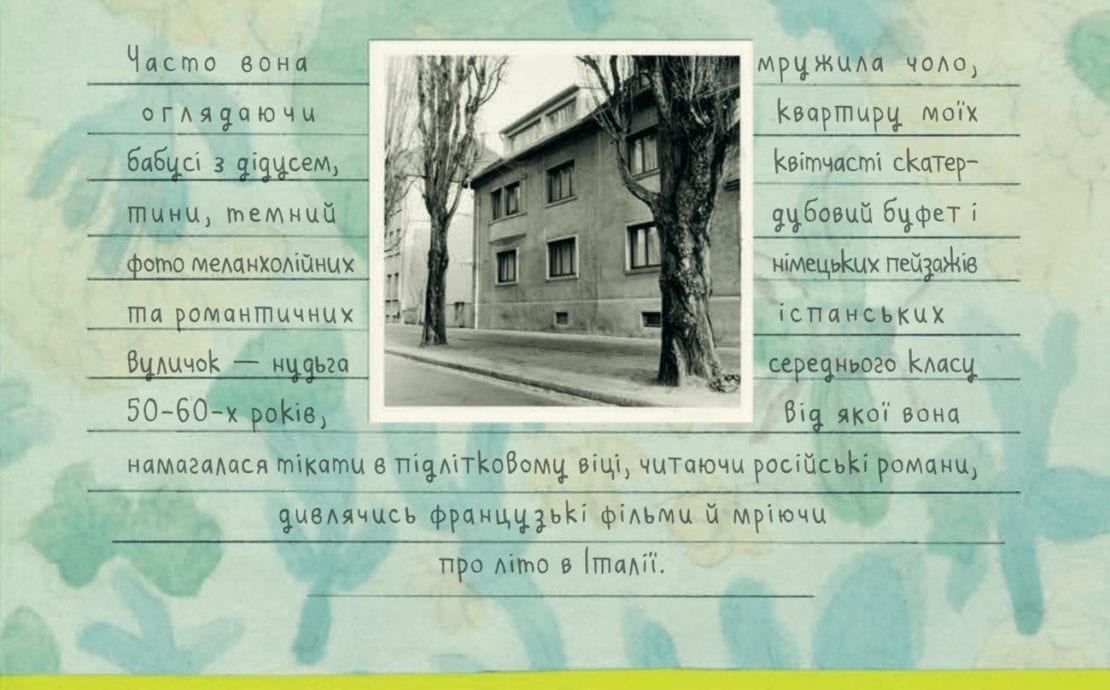 Часто вона мружила чоло,
оглядаючи квартиру моїх
бабусі з дідусем, квітчасті скатер-
тини, темний дубовий буфет і
фото меланхолійних німецьких пейзажів
та романтичних іспанських
вуличок — нудьга середнього класу
50-60-х років, від якої вона
намагалася тікати в підлітковому віці, читаючи російські романи,
дивлячись французькі фільми й мріючи
про літо в Італії.